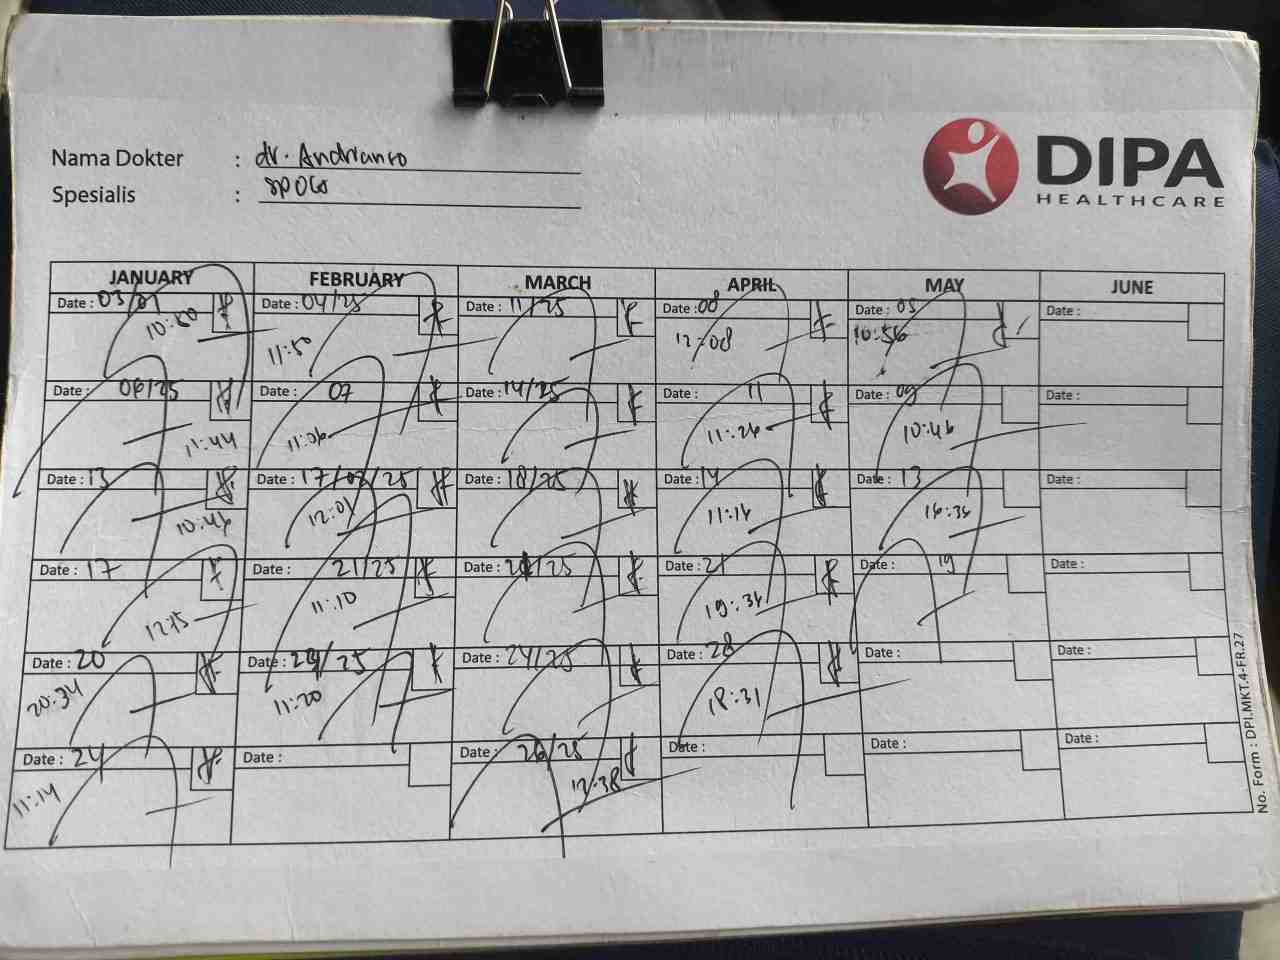 Nama Dokter : dr. Andrianto
Spesialis : SpOG
DIPA
HEALTHCARE
JANUARY FEBRUARY MARCH APRIL MAY JUNE
Date : 03/01 Date : 04/25 Date : 11/25 Date : 08 Date : 05 Date :
10:50 11:50 12:08 10:56
Date : 06/25 Date : 07 Date : 14/25 Date : 11 Date : 09 Date :
11:44 11:06 11:26 10:46
Date : 13 Date : 17/02/25 Date : 18/25 Date : 14 Date : 13 Date :
10:46 12:01 11:16 16:36
Date : 17 Date : 21/25 Date : 21/25 Date : 21 Date : 19 Date :
11:10 19:36
Date : 20 Date : 25 Date : 24/25 Date : 28 Date : Date :
20:34 11:20 18:31
Date : 24 Date : Date : 26/25 Date : Date : Date :
11:14 12:38
No. Form : DPI.MKT.4-FR.27